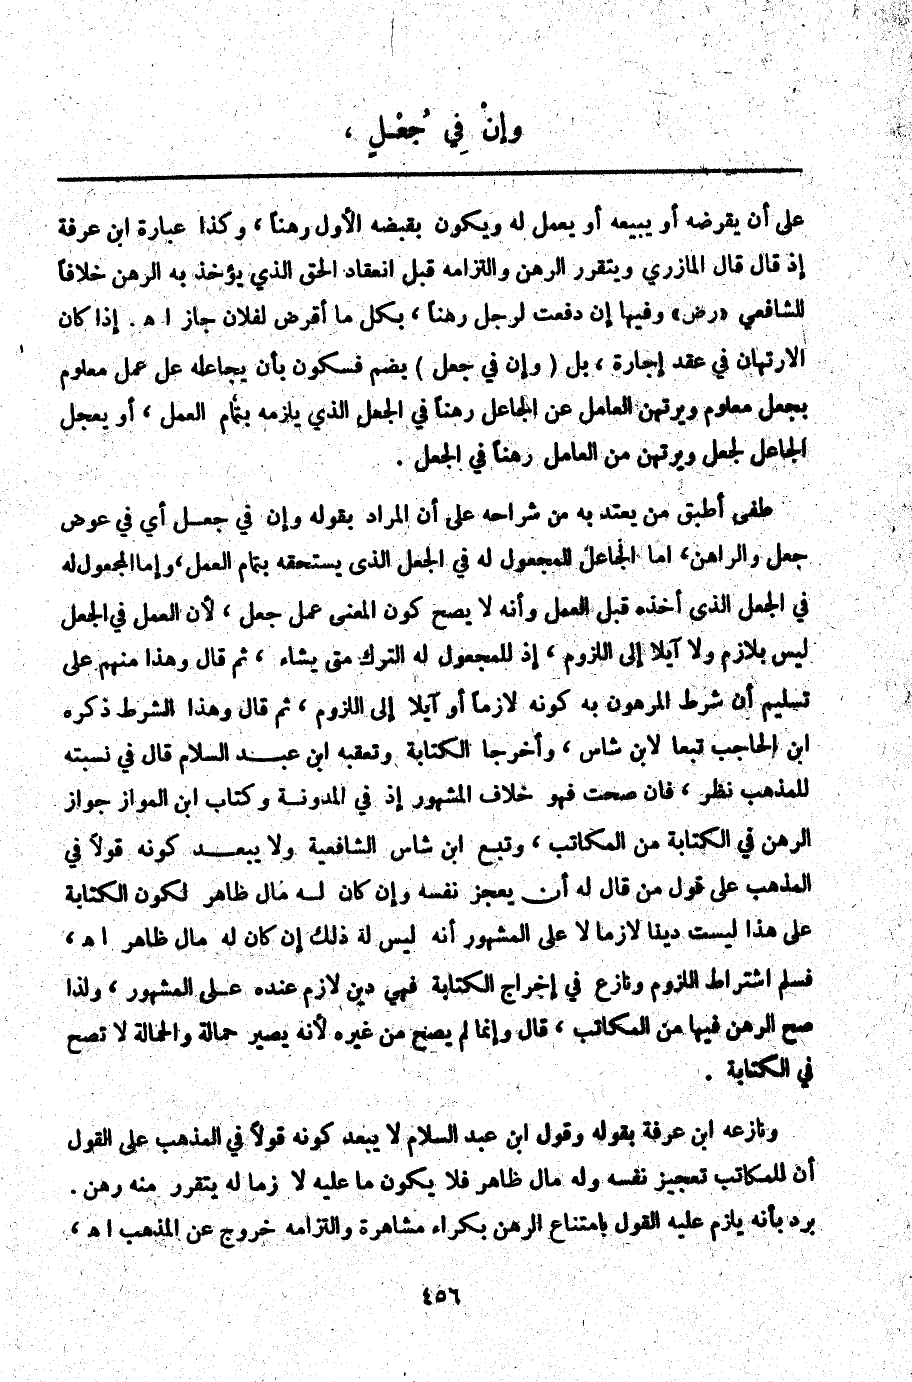 وإنْ فِي جُعْلٍ ،
على أن يقرضه أو يبيعه أو يعمل له ويكون بقبضه الأول رهناً ، وكذا عبارة ابن عرفة
إذ قال قال المازري ويتقرر الرهن والتزامه قبل انعقاد الحق الذي يؤخذ به الرهن خلافاً
للشافعي «رض» وفيها إن دفعت لرجل رهناً ، بكل ما أقرض لفلان جاز ا ه . إذا كان
الارتهان في عقد إجارة ، بل ( وإن في جعل ) بضم فسكون بأن يجاعله على عمل معلوم
بجعل معلوم ويرتهن العامل عن الجاعل رهناً في الجعل الذي يلزمه بتمام العمل ، أو يعجل
الجاعل لجعل ويرتهن من العامل رهناً في الجعل .
طفى أطبق من يعتد به من شراحه على أن المراد بقوله وإن في جعـل أي في عوض
جعل والراهن، اما الجاعل للمجعول له في الجعل الذى يستحقه بتمام العمل،وإماالمجعول له
في الجعل الذى أخذه قبل العمل وأنه لا يصح كون المعنى عمل جعل ، لأن العمل في الجعل
ليس بلازم ولا آيلا إلى اللزوم ، إذ للمجعول له الترك متى يشاء ، ثم قال وهذا منهم على
تسليم أن شرط المرهون به كونه لازماً أو آيلا إلى اللزوم ، ثم قال وهذا الشرط ذكره
ابن الحاجب تبعا لابن شاس ، وأخرجا الكتابة وتعقبه ابن عبـــد السلام قال في نسبته
للمذهب نظر ، فان صحت فهو خلاف المشهور إذ في المدونـة وكتاب ابن المواز جواز
الرهن في الكتابة من المكاتب ، وتبـع ابن شاس الشافعية ولا يبعـــد كونه قولاً في
المذهب على قول من قال له أن يعجز نفسه وإن كان لـه مال ظاهر لكون الكتابة
على هذا ليست دينا لازما لا على المشهور أنه ليس له ذلك إن كان له مال ظاهر ا ه ،
فسلم اشتراط اللزوم ونازع في إخراج الكتابة فهي دين لازم عنده عـلى المشهور ، ولذا
صح الرهن فيها من المكاتب ، قال وإنما لم يصح من غيره لأنه يصير حمالة والحمالة لا تصح
في الكتابة .
ونازعه ابن عرفة بقوله وقول ابن عبد السلام لا يبعد كونه قولاً في المذهب على القول
أن للمكاتب تعجيز نفسه وله مال ظاهر فلا يكون ما عليه لا زما له يتقرر منه رهن .
يرد بأنه يلزم عليه القول بامتناع الرهن بكراء مشاهرة والتزامه خروج عن المذهب ا ه ،
٤٥٦